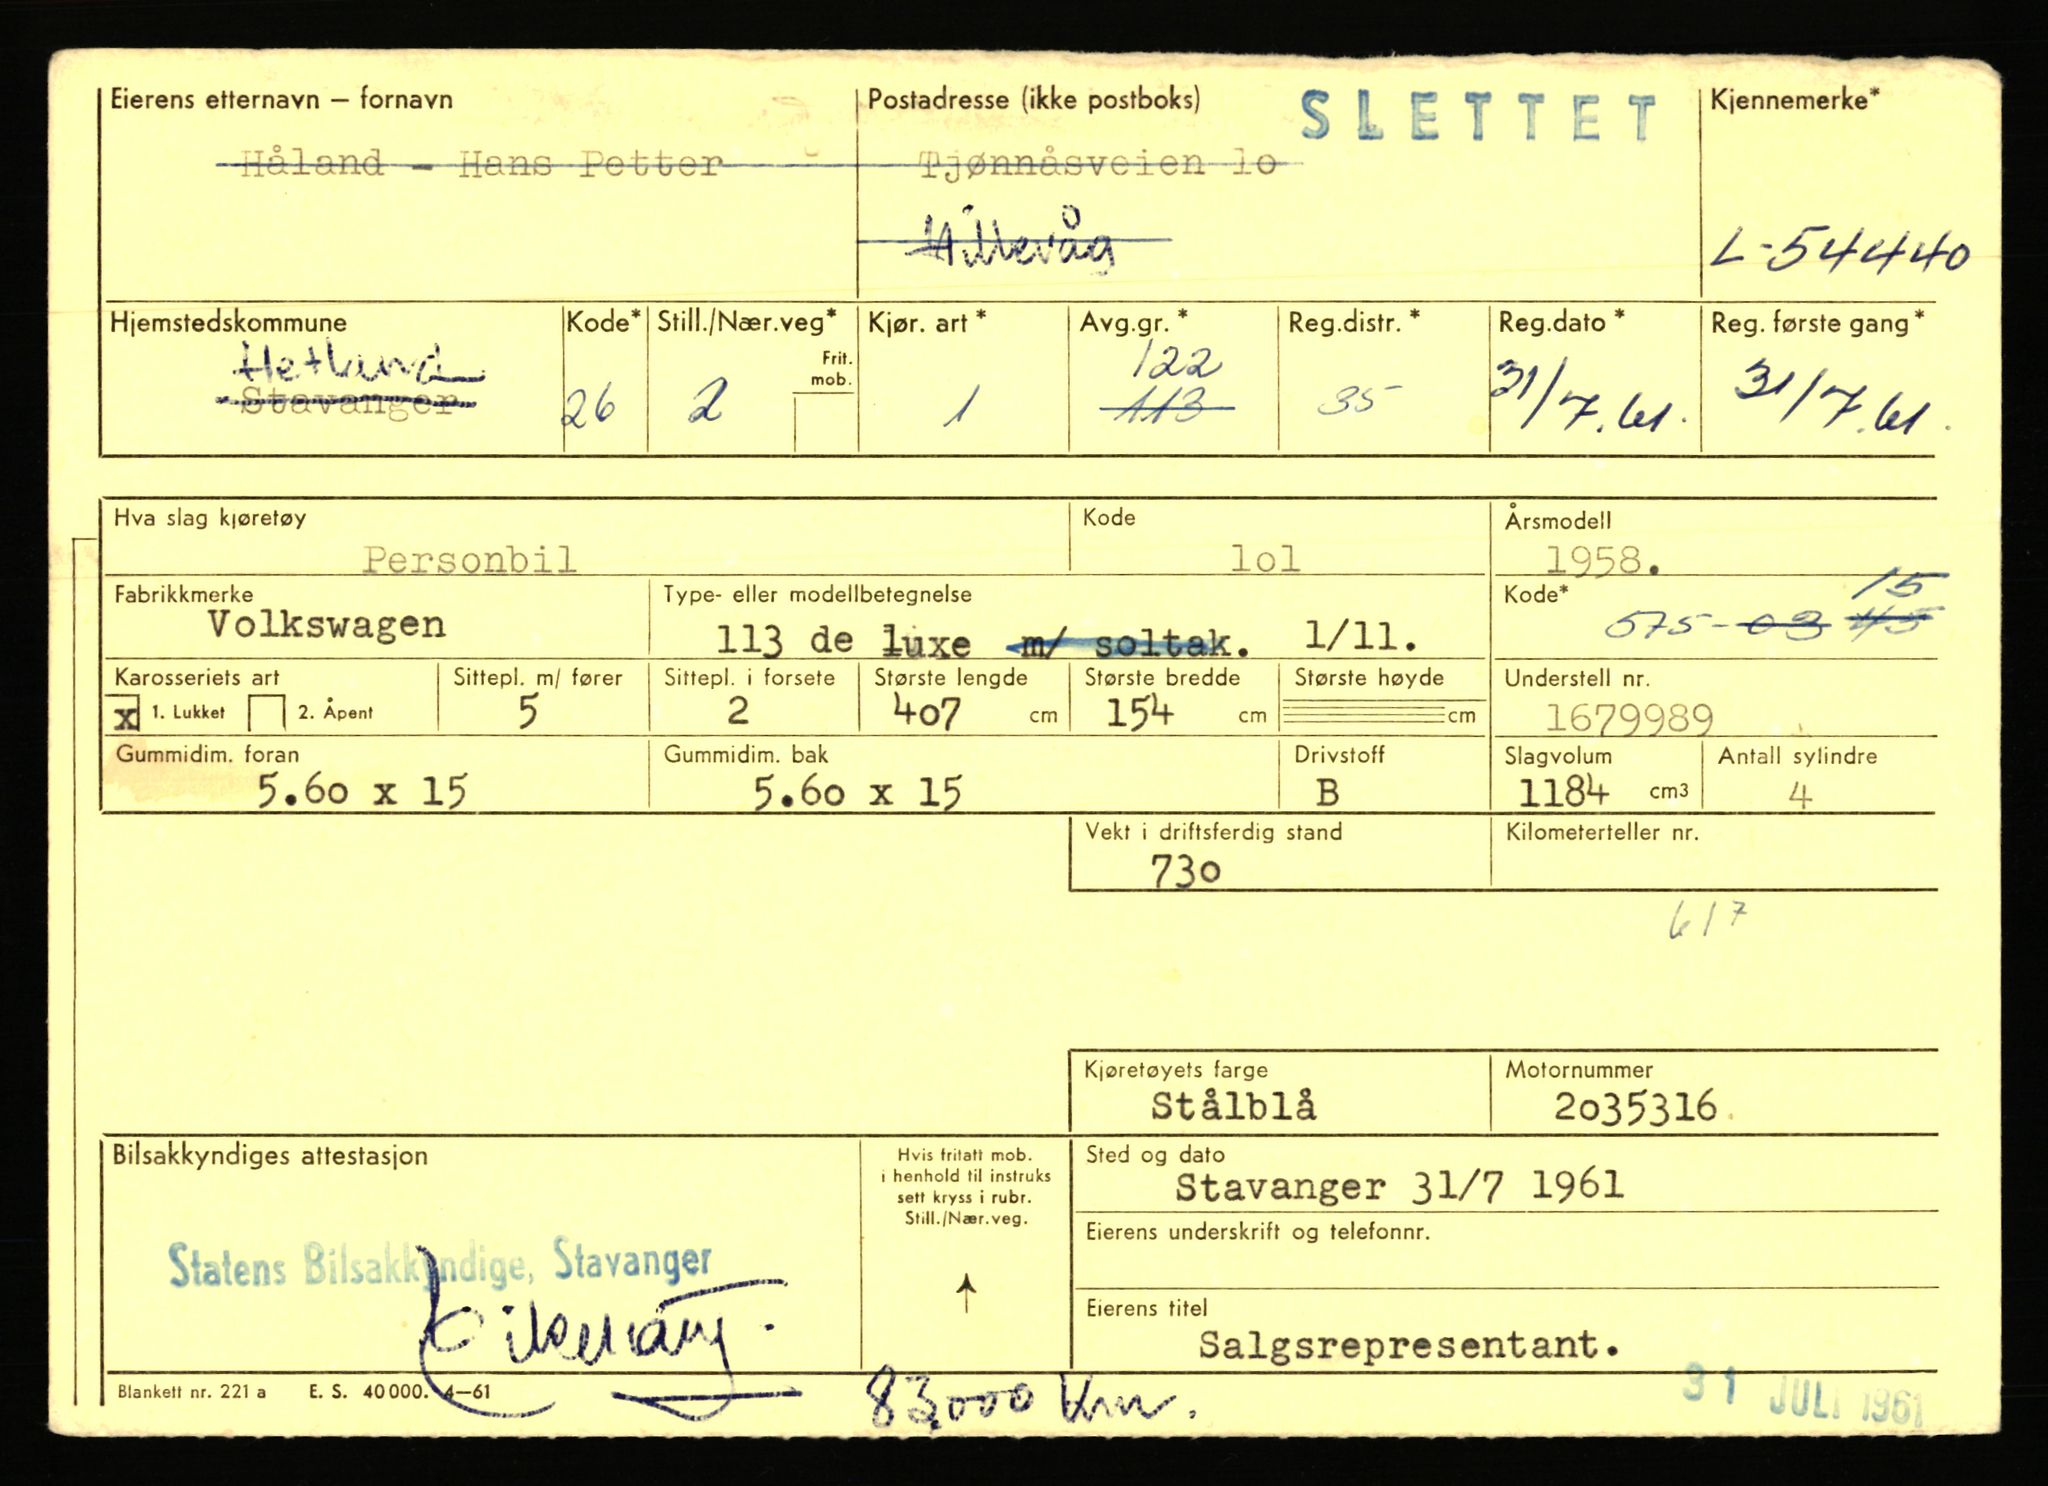 Eierens etternavn – fornavn Postadresse (ikke postboks) SLETTET Kjennemerke*
Håland - Hans Petter Tjønnåsveien 1o
Hillevåg
L-54440
Hjemstedskommune Kode* Still./Nær.veg* Kjør. art* Avg.gr.* Reg.distr.* Reg.dato* Reg. første gang*
Hetland Frit. mob. 122
Stavanger 26 2 1 113 35 31/7.61. 31/7.61.
Hva slag kjøretøy Kode Årsmodell
Personbil 1o1 1958.
Fabrikkmerke Type- eller modellbetegnelse Kode* 15
Volkswagen 113 de luxe m/ soltak. 1/11. 575-03 45
Karosseriets art Sittepl. m/ fører Sittepl. i forsete Største lengde Største bredde Største høyde Understell nr.
x 1. Lukket 2. Åpent 5 2 4o7 cm 154 cm cm 1679989
Gummidim. foran Gummidim. bak Drivstoff Slagvolum Antall sylindre
5.6o x 15 5.6o x 15 B 1184 cm3 4
Vekt i driftsferdig stand Kilometerteller nr.
73o
617
Kjøretøyets farge Motornummer
Stålblå 2o35316
Bilsakkyndiges attestasjon
Hvis fritatt mob.
i henhold til instruks
sett kryss i rubr.
Still./Nær.veg.
Sted og dato
Stavanger 31/7 1961
Eierens underskrift og telefonnr.
Statens Bilsakkyndige, Stavanger
Eierens titel
Salgsrepresentant.
Blankett nr. 221 a E. S. 40 000. 4—61 83.000 Km. 31 JULI 1961